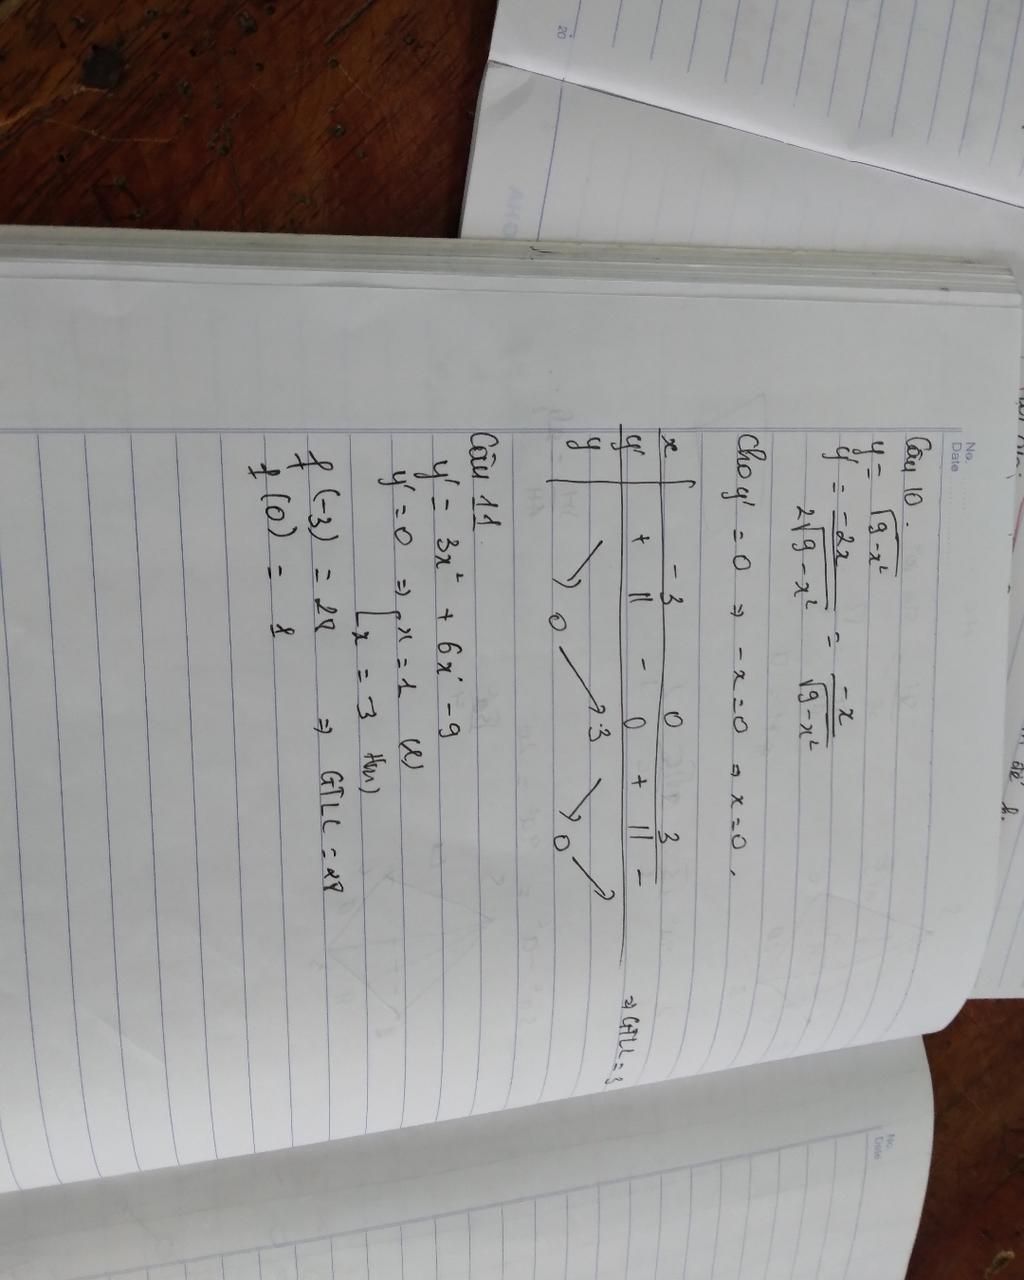 No.
Date
Câu 10.
y = √9-x²
y' = -2x / 2√9-x² = -x / √9-x²
Cho y' = 0 ⇒ -x = 0 ⇒ x = 0.
x -3 0 3
y' + || - 0 + || -
y ↘ 0 ↗ 3 ↘ 0 ↗
⇒ GTLL = 3
Câu 11.
y' = 3x² + 6x - 9
y' = 0 ⇒ [ x = 1 (l)
x = -3 (tm)
f (-3) = 28 ⇒ GTLL = 28
f (0) = 1
No.
Date
20